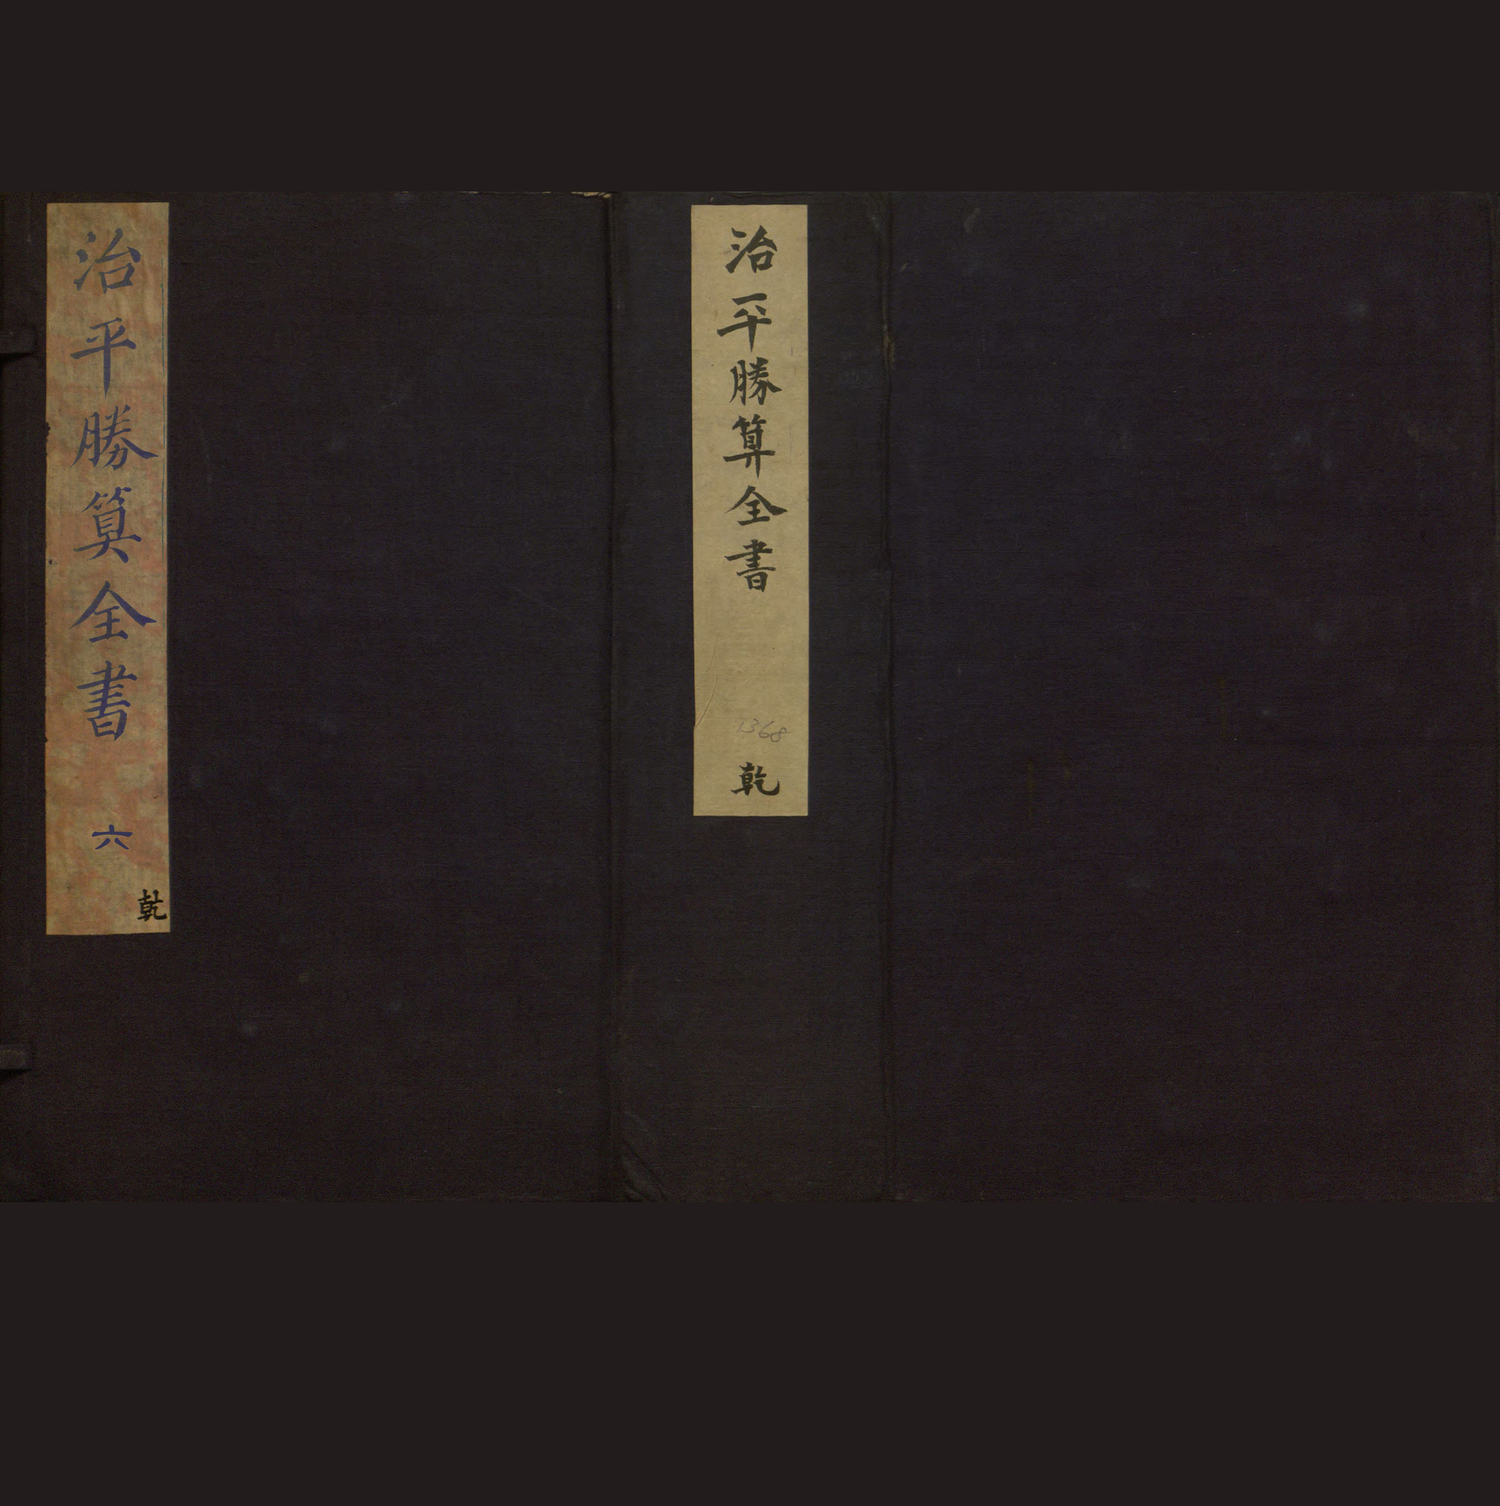 治平勝算全書
1368
乾
治平勝筭全書
六
乾